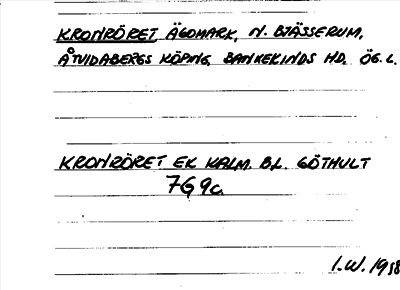 KRONRÖRET, ÄGOMARK, N. BJÄSSERUM,
ÅTVIDABERGS KÖPING, BANKEKINDS HD. ÖG. L.
KRONRÖRET EK. KALM. BL. GÖTHULT
7G 9c.
I.W. 1958